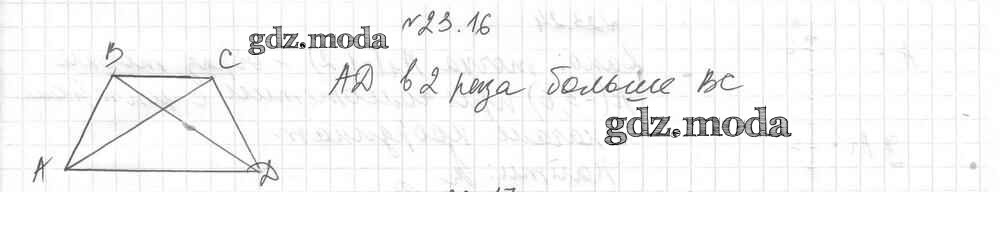 №23.16
gdz.moda
B C
AD в 2 раза больше BC
gdz.moda
A D